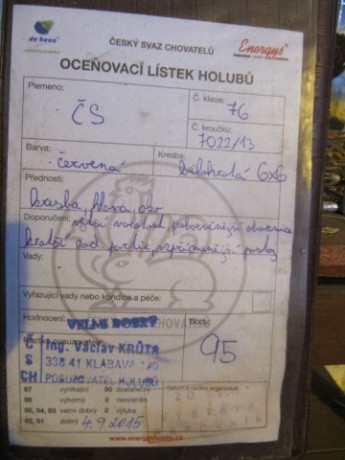 de heus
ČESKÝ SVAZ CHOVATELŮ
Energys
OCEŇOVACÍ LÍSTEK HOLUBŮ
Plemeno:
ČS
Č. klece: 76
Č. kroužku:
7022/13
Barva:
červená
Kresba:
bělohrotá 6x6
Přednosti:
kresba, hlava, oko
Doporučení:
kratší zad. partie, vzpřímenější postoj
Vady:
Vylučující vady nebo kondice a péče:
Hodnocení:
VELMI DOBRÝ
Body:
95
Č Ing. Václav KRŮTA
S 338 41 KLABAVA
CH POSUZOVATEL HOLUBŮ
97 vynikající 90 dostatečný
96 výborný 0 neoceněn
95, 94, 93 velmi dobrý 0 výluka
92, 91 dobrý
4.9.2015
www.energyshobby.cz